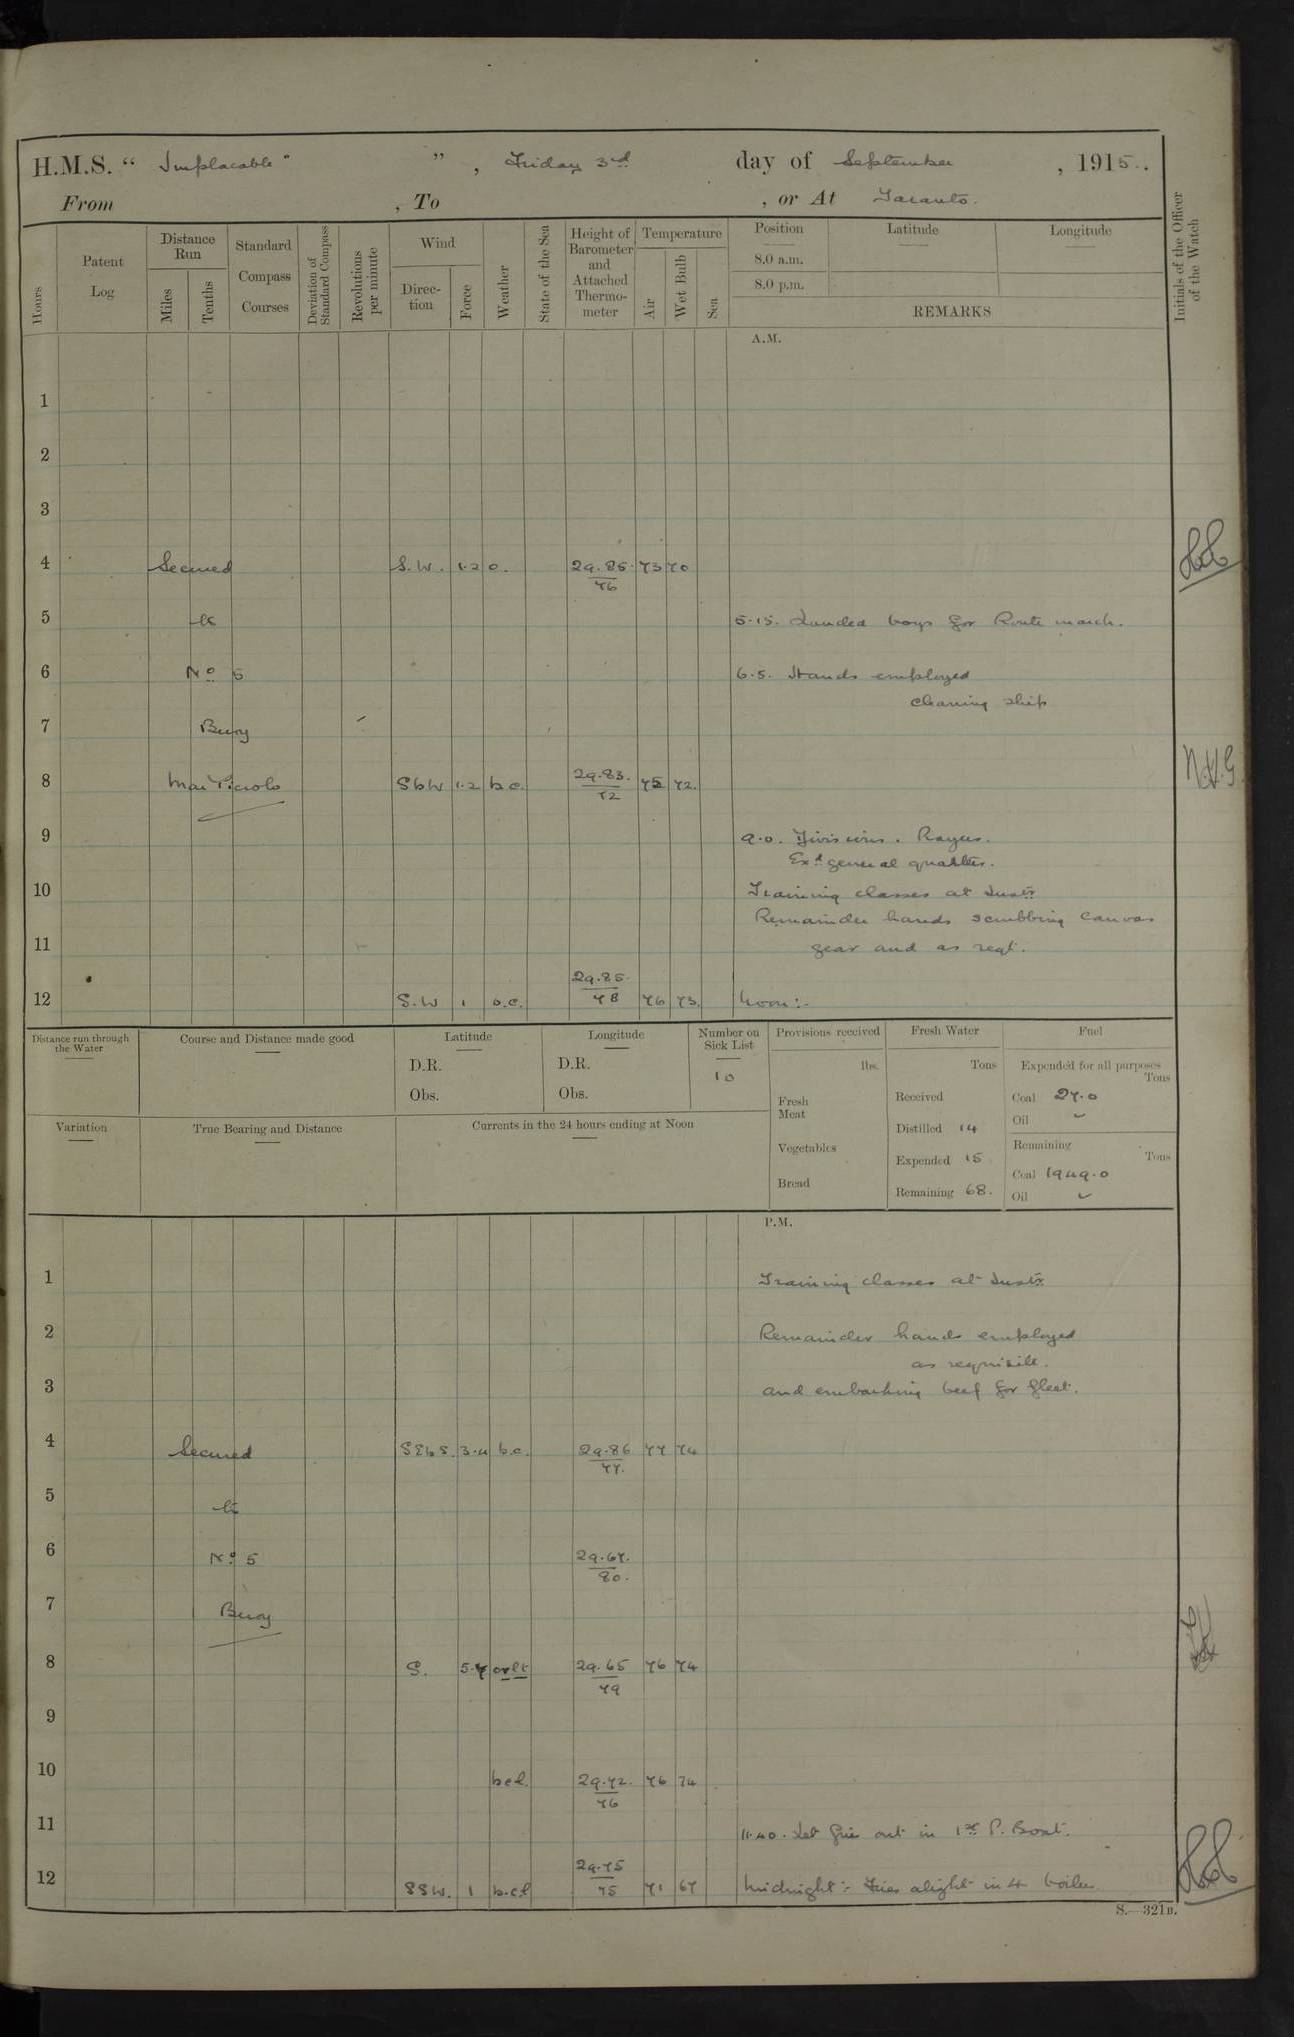 H.M.S. " Implacable " ", Friday 3rd day of September, 1915.
From , To , or At Taranto.
Hours
Patent Log
Distance Run
Miles
Tenths
Standard Compass Courses
Deviation of Standard Compass
Revolutions per minute
Wind
Direction
Force
Weather
State of the Sea
Height of Barometer and Attached Thermometer
Temperature
Air
Wet Bulb
Sea
Position
Latitude
Longitude
8.0 a.m.
8.0 p.m.
REMARKS
Initials of the Officer of the Watch
A.M.
1
2
3
4 Secured S.W. 1.2 o. 29.85 76 73 70
5 to 5.15. Landed boys for Route march.
6 No 5 6.5. Hands employed
cleaning ship
7 Buoy
8 Mar Piccolo SbW 1.2 b.c. 29.83. 72 75 72. N.V.G.
9 9.0. Divisions. Prayers.
Exd general quarters.
10 Training classes at Instn
Remainder hands scrubbing canvas
11 gear and as reqt.
12 S.W 1 o.c. 29.85 78 76 73. Noon:-
Distance run through the Water
Course and Distance made good
Latitude
D.R.
Obs.
Longitude
D.R.
Obs.
Number on Sick List
10
Provisions received
lbs.
Fresh Meat
Vegetables
Bread
Fresh Water
Tons
Received
Distilled 14
Expended 15
Remaining 68.
Fuel
Expended for all purposes
Tons
Coal 27.0
Oil
Remaining
Tons
Coal 1949.0
Oil
Variation
True Bearing and Distance
Currents in the 24 hours ending at Noon
P.M.
1 Training classes at Instn
2 Remainder hands employed
as requisite.
3 and embarking beef for fleet.
4 Secured SEbS. 3.4 b.c. 29.86 77. 77 74
5 to
6 No 5 29.67. 80.
7 Buoy
8 S. 5.7 orlt 29.65 79 76 74
9
10 bcl. 29.72. 76 76 74
11 11.40. Let fires out in 1st P. Boat.
12 SSW. 1 b.c.l 29.75 75 71 67 Midnight:- Fires alight in 4 boilers
S.—321B.